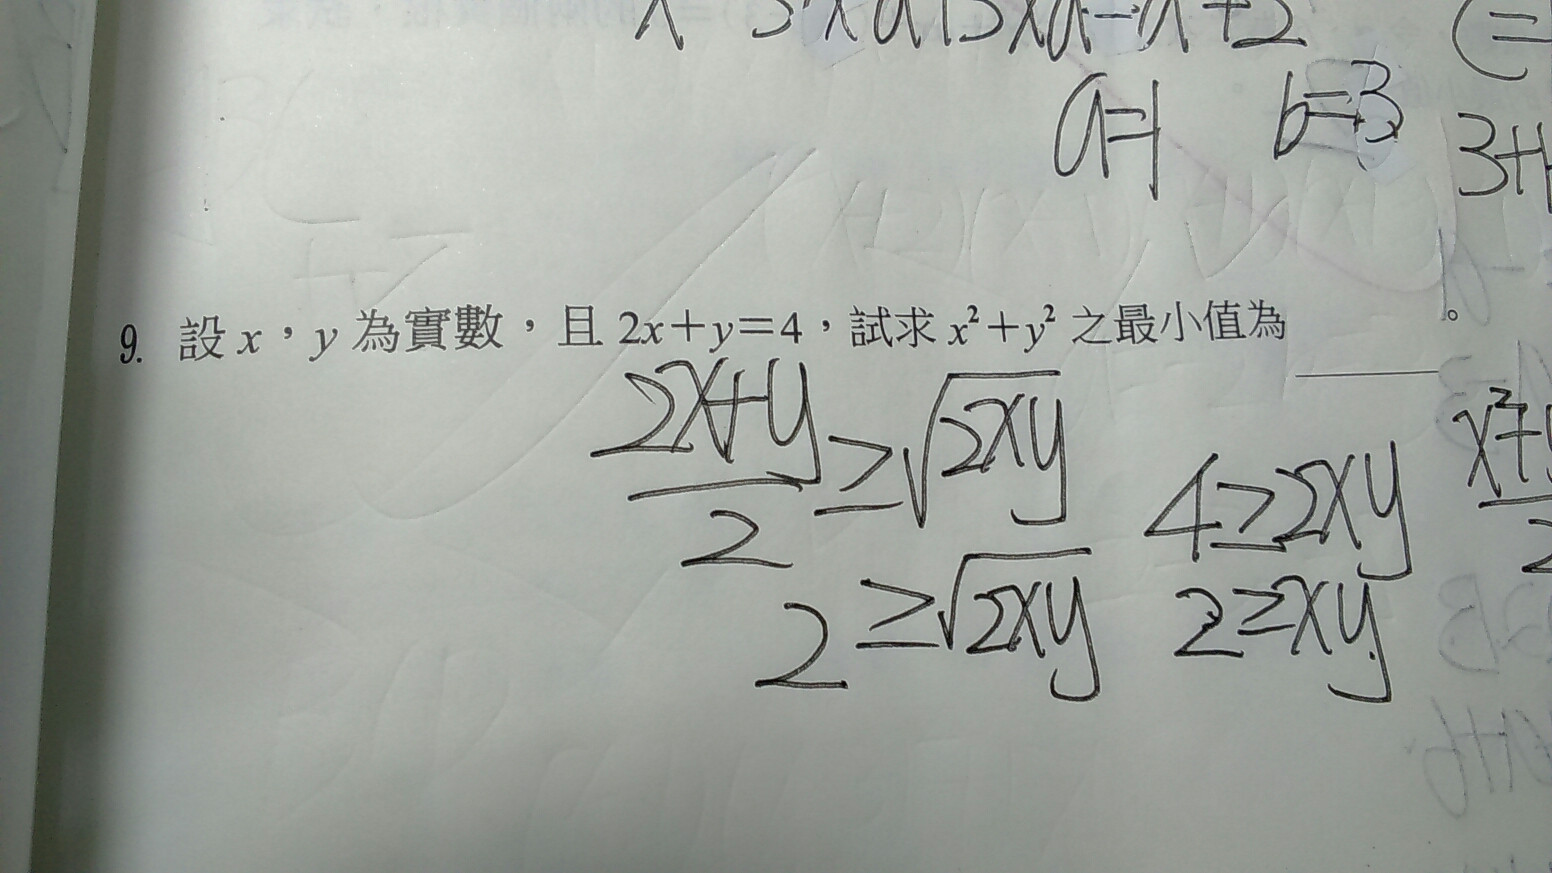 a=1 b=3
3+
9. 設 x，y 為實數，且 2x＋y＝4，試求 x²＋y² 之最小值為________。
(2x+y)/2 ≥ √(2xy)
4≥2xy
2 ≥ √(2xy)
2≥xy